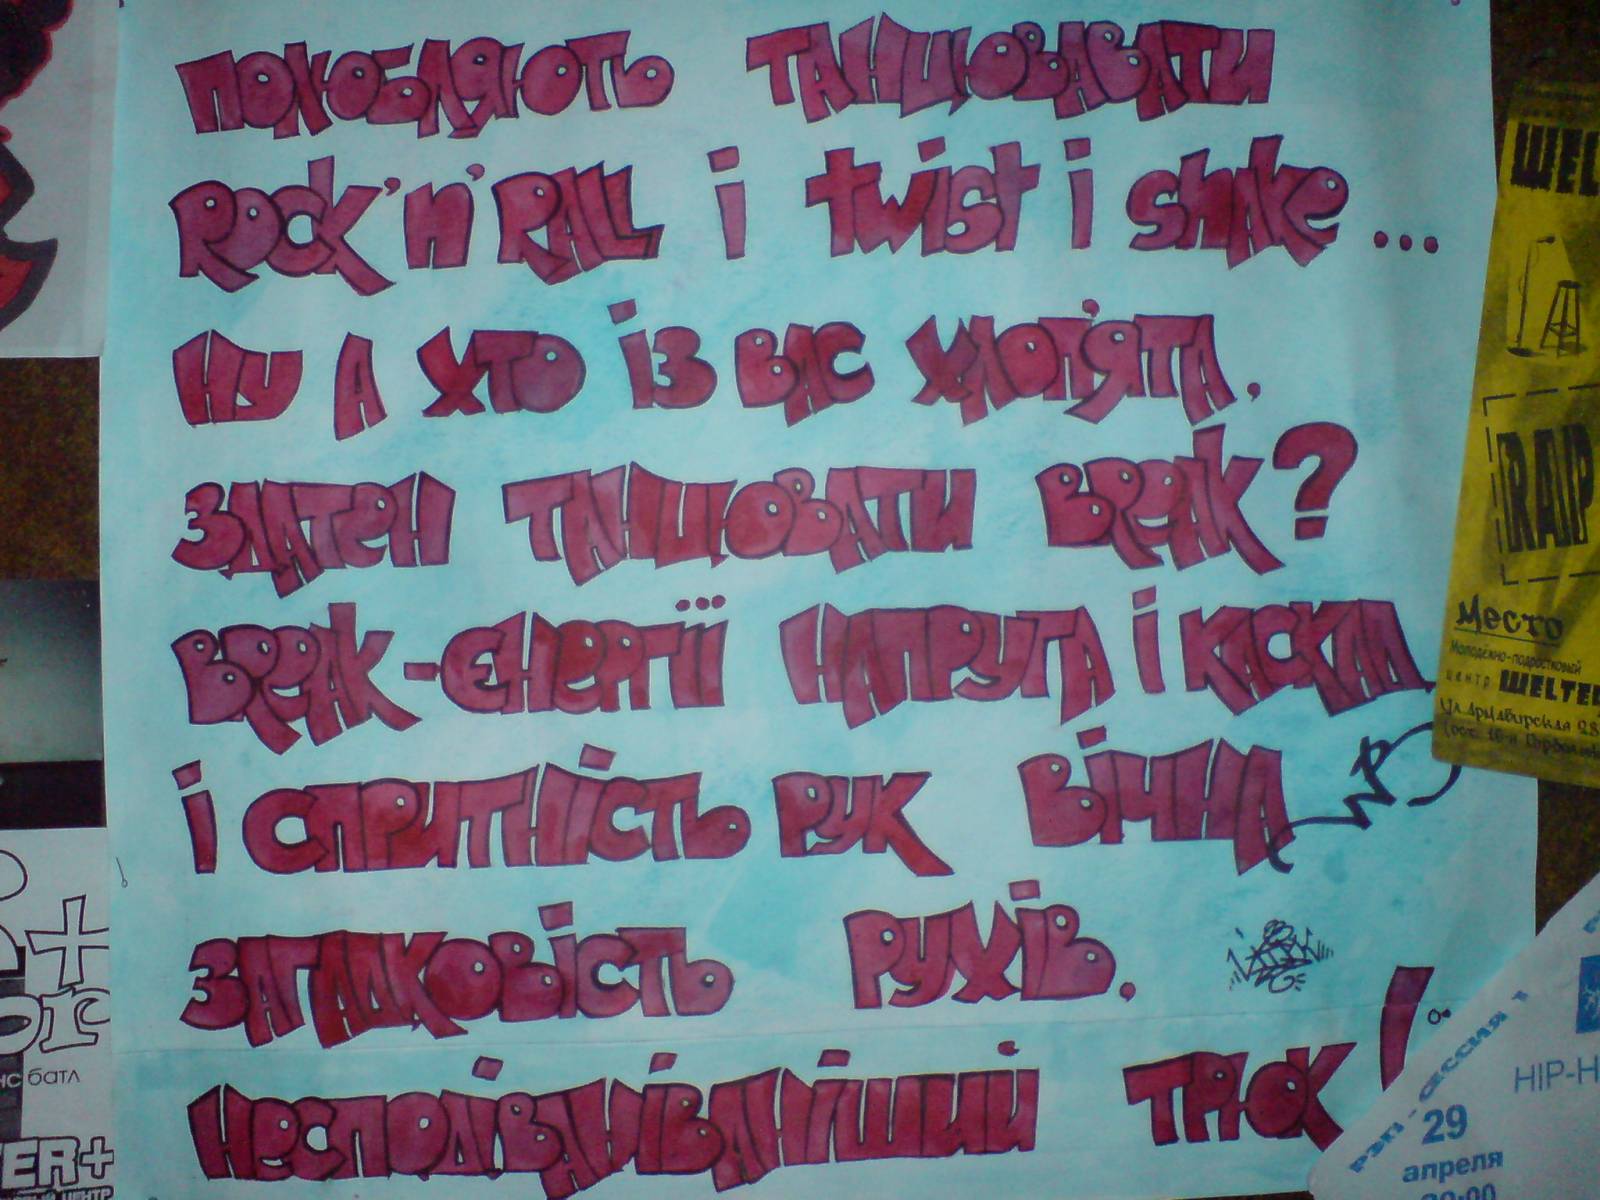 ПОЛЮБЛЯЮТЬ ТАНЦЮВАВАТИ
ROCK'n'RALL і twist і shake...
НУ А ХТО ІЗ ВАС ХЛОП'ЯТА,
ЗДАТЕН ТАНЦЮВАТИ BREAK?
BREAK-ЄНЕРГІЇ НАПРУГА І КАСКАД
І СПРИТНІСТЬ РУК ВІЧНА
ЗАГАДКОВІСТЬ РУХІВ,
НЕСПОДІВАНІВАНІШИЙ ТРЮК!
WEL
RAP
Место
Молодёжно-подростковый
центр WELTE
батл
ER+
РЭП-СЕССИЯ
HIP-H
29
апреля